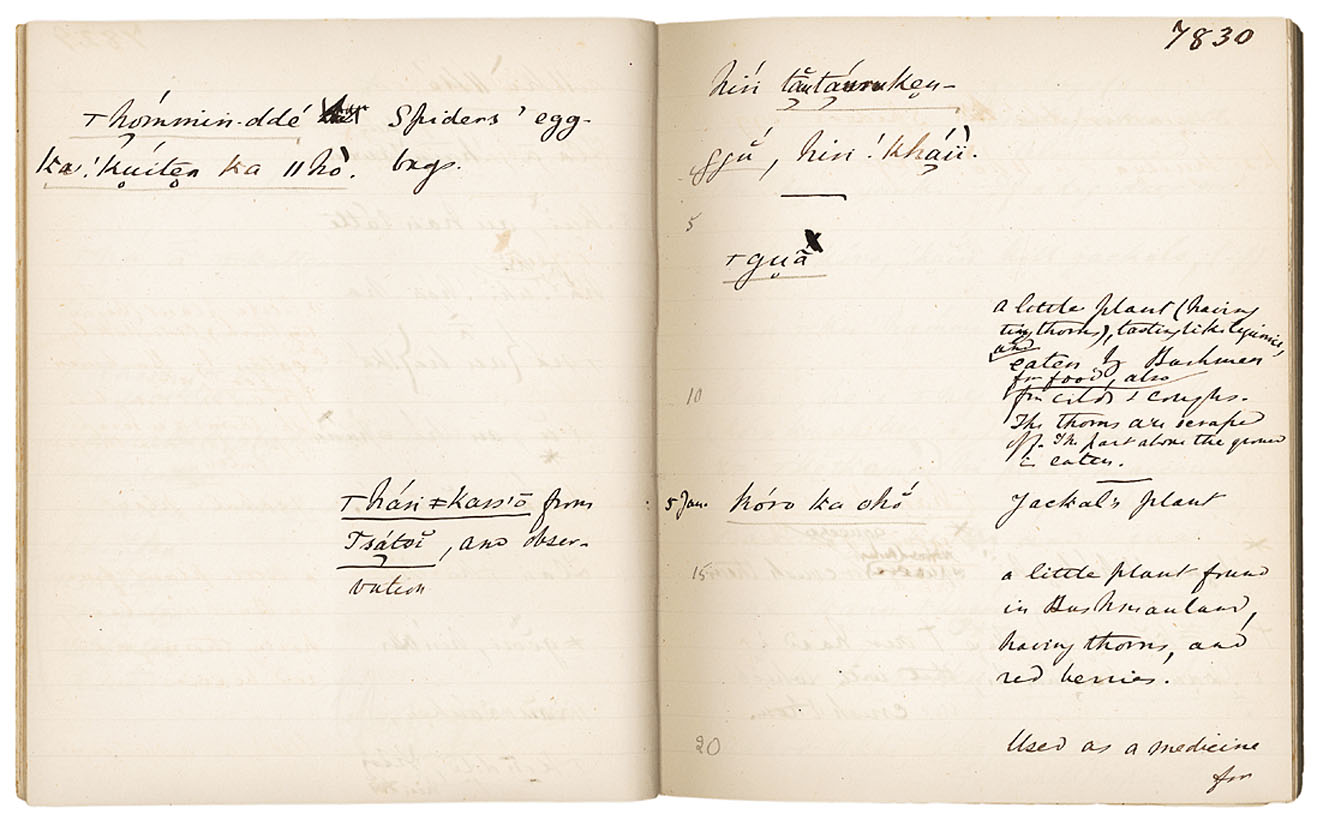 hómmin-ddé Spiders' egg-
ka !kúitẹn ka ǁhò. bags.
hási ≠kass'ō from
Tsátsĭ, and obser-
vation
7830
hiń
ggŭ, hiń !kháiì.
5
a little plant (having
tiny thorns), tasting like quinine,
and
eaten by Bushmen
for food, also
10
for colds & coughs.
The thorns are scraped
off. The part above the ground
is eaten.
5 Jan. kóro ka ohŏ Jackal's plant
15 a little plant found
in Bushmanland,
having thorns, and
red berries.
20 Used as a medicine
for